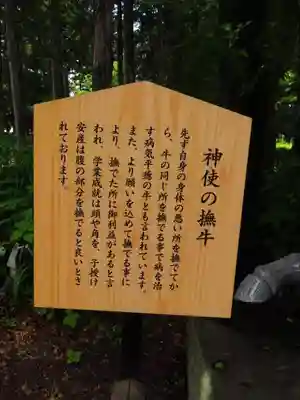 神使の撫牛
先ず自身の身体の悪い所を撫でてか
ら、牛の同じ所を撫でる事で病を治
す病気平癒の牛とも言われています。
また、より願いを込めて撫でる事に
より、撫でた所に御利益があると言
われ、学業成就は頭や角を、子授け
安産は腹の部分を撫でると良いとさ
れております。